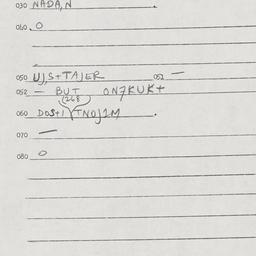 030 NADA, N .
060. O
050 UJS+TAJER 052 —
052 — BUT ON7KUK+
(268
060 DOS+I TNOJ1M .
070 —
080 O